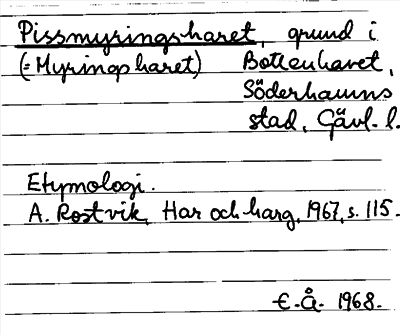 Pissmyringsharet, grund i
(=Myringsharet) Bottenhavet,
Söderhamns
stad, Gävl. l.
Etymologi.
A. Rostvik, Har och harg, 1967, s. 115.
E. Å. 1968.